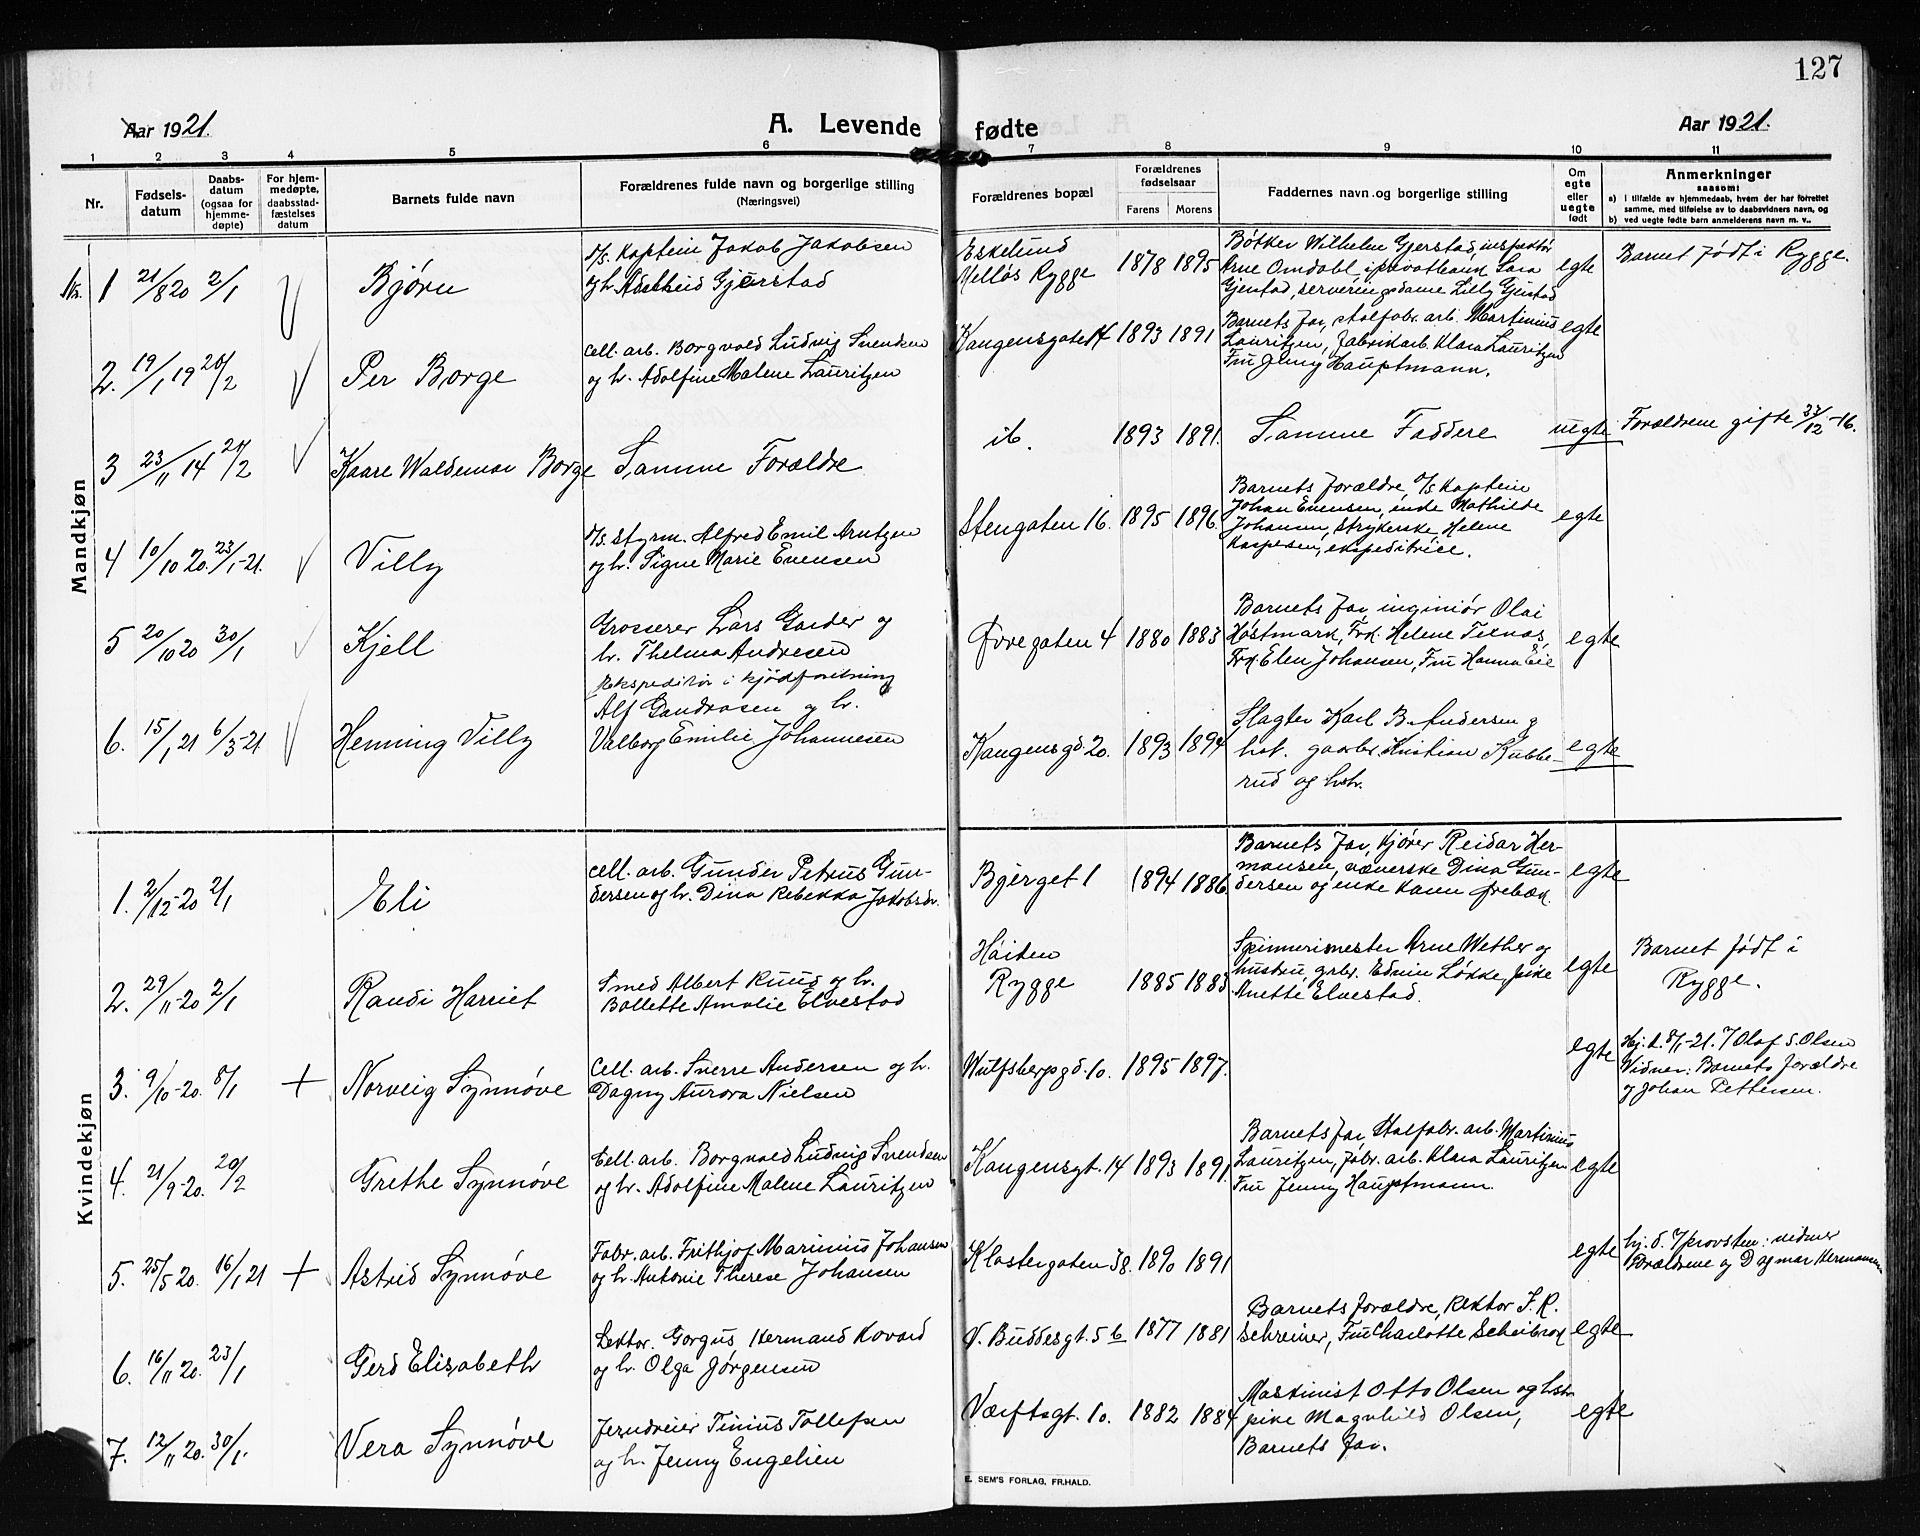 127
Aar 1921.
A. Levende fødte
Aar 1921.
1 2 3 4 5 6 7 8 9 10 11
Nr.
Fødsels-
datum
Daabs-
datum
(ogsaa for
hjemme-
døpte)
For hjem-
medøpte,
daabsstad-
fæstelses
datum
Barnets fulde navn
Forældrenes fulde navn og borgerlige stilling
(Næringsvei)
Forældrenes bopæl
Forældrenes
fødselsaar
Farens Morens
Faddernes navn og borgerlige stilling
Om
egte
eller
uegte
født
Anmerkninger
saasom:
a) I tilfælde av hjemmedaab, hvem der har forrettet
samme, med tilføielse av to daabsvidners navn, og
b) ved uegte fødte barn anmelderens navn m. v..
Mandkjøn
1 21/8 20 2/1
Bjørn
S/s. Kaptein Jakob Jakobsen
og h. Adelheid Gjerstad
Eskelund
Melløs Rygge
1878 1895
Bøtker Wilhelm Gjerstad, inspektør
Arne Omdahl, i privatbank Lara
Gjerstad, serveringsdame Lilly Gjerstad
egte
Barnet født i Rygge.
2. 19/1 19 20/2
Per Borge
Cell. arb. Borgvald Ludvig Svendsen
og h. Adolfine Malene Lauritzen
Kongensgate 14 1893 1891
Barnets far, Stalfabr. arb. Martinius
Lauritzen, fabrikarb. Klara Lauritzen
Fru Jenny Hauptmann.
egte
3 23/11 14 20/2
Kaare Waldemar Borge
Samme Forældre
ib. 1893 1891.
Samme Faddere
uegte
Forældrene gifte 27/12 -16.
4 10/10 20. 23/1-21.
Villy
S/s. Styrm. Alfred Emil Arntzen
og h. Signe Marie Evensen
Stengaten 16. 1895 1896.
Barnets forældre, S/s Kaptein
Johan Evensen, enke Mathilde
Johansen, Strykerske Helene
Kaspersen, ekspeditrice.
egte
5 20/10 20 30/1
Kjell
Grosserer Lars Garder og
h. Thelma Andresen
Øvregaten 4 1880 1883
Barnets far, inginiør Olai
Høstmark, Frk. Helene Teinæs,
Frk. Elen Johansen, Fru Hanna Eie
egte
6. 15/1 21 6/3-21
Henning Villy
Ekspeditør i kjødforretning
Alf Gundrosen og h.
Valborg Emilie Johannesen
Kongensgd. 20. 1893 1894
Slagter Karl B. Andersen g
hst. gaarbr. Kristian Kubbe-
rud og hstr.
egte
Kvindekjøn
1. 2/12-20 2/1
Eli
Cell. arb. Gunder Petrus Gun-
dersen og h. Dina Rebekka Jakobsdr.
Bjerget 1 1894 1886.
Barnets far, Kjører Reidar Her-
mansen, væverske Dina Gun-
dersen og enke Karen Ørebæk.
egte
2. 29/11-20 2/1
Randi Harriet
Smed Albert Ruud og h.
Bollette Amalie Elvestad
Høiden
Rygge 1885 1883
Spinnerimester Arne Wether og
hustru, grbr. Edvin Løkke, pike
Anette Elvestad.
egte
Barnet født i
Rygge.
3. 9/10-20. 8/1 +
Norveig Synnøve
Cell. arb. Sverre Andersen og h.
Dagny Aurora Nielsen
Wulfsbergsgd. 10. 1895 1897.
egte
Hj. d. 8/1-21. 7 Olaf S. Olsen
Vidner: Barnets forældre
og Johan Pettersen.
4. 21/9-20. 20/2
Grethe Synnøve
Cell. arb. Borgvald Ludvig Svendsen
og h. Adolfine Malene Lauritzen
Kongensgt. 14 1893 1891.
Barnets far, Stalfabr. arb. Martinius
Lauritzen, fabr. arb. Klara Lauritzen
Fru Jenny Hauptmann.
egte
5. 25/5 20. 16/1 21 +
Astrid Synnøve
Fabr. arb. Frithjof Marinius Johansen
og h. Antonie Therese Johansen
Klostergaten 38. 1890 1891
egte
hj. d. 7 provsten: vidner
Forældrene og Dagmar Hermansen
6. 16/11 20. 23/1
Gerd Elizabeth
Lektor Gorgus Hermand Kovard
og h. Olga Jørgensen
V. Buddesgt. 5 b 1877 1881
Barnets forældre, Rektor F. R.
Schreiner, Fru Charlotte Scheibrok
egte
7. 12/11 20. 30/1.
Vera Synnøve
Jerndreier Tinius Tollefsen
og h. Jenny Engelien
Værftsgt. 10. 1882 1884
Maskinist Otto Olsen og hstr.
pike Magnhild Olsen,
Barnets far.
egte
E. SEM'S FORLAG, FR.HALD.